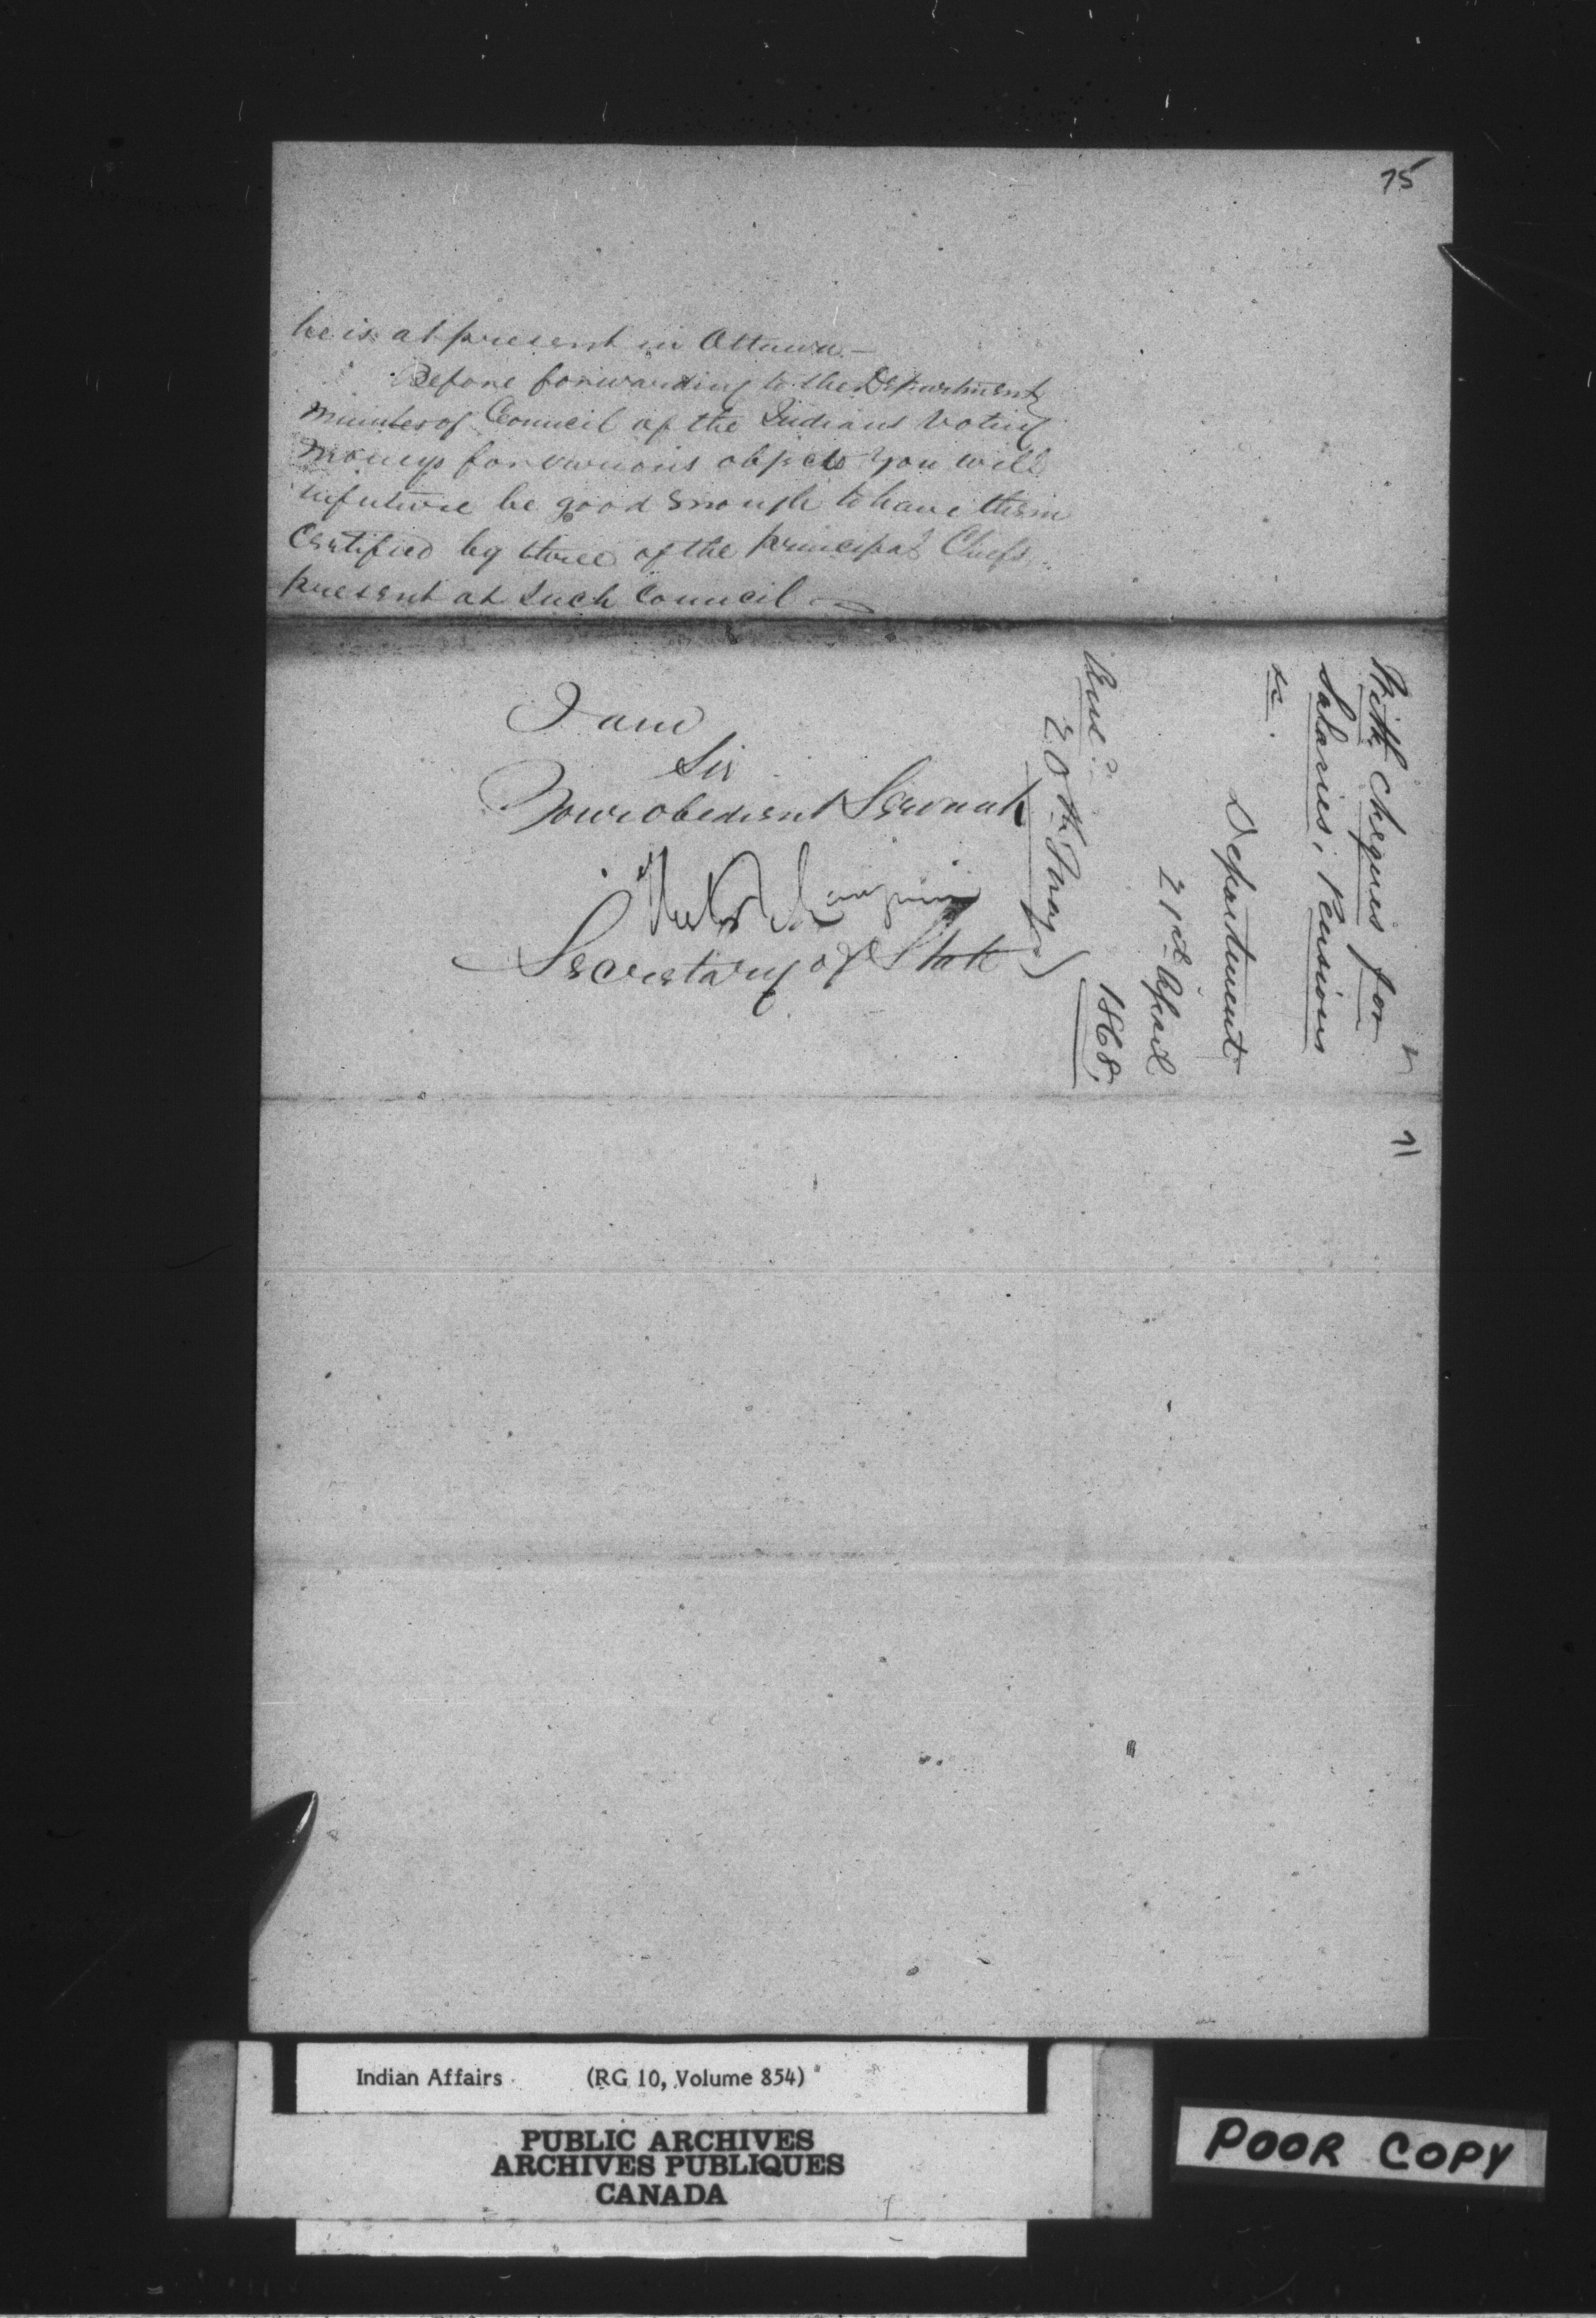 75
he is at present in Ottawa —
Before forwarding to the Department
minutes of Council of the Indians Voting
moneys for various objects you will
in future be good enough to have them
Certified by three of the principal Chiefs
present at such Council —
I am
Sir
Your obedient Servant
Secretary of State
With Cheques for
Salaries, Pensions
&c.
Department
21st April
1868.
20th May
71
Indian Affairs (RG 10, Volume 854)
PUBLIC ARCHIVES
ARCHIVES PUBLIQUES
CANADA
POOR COPY